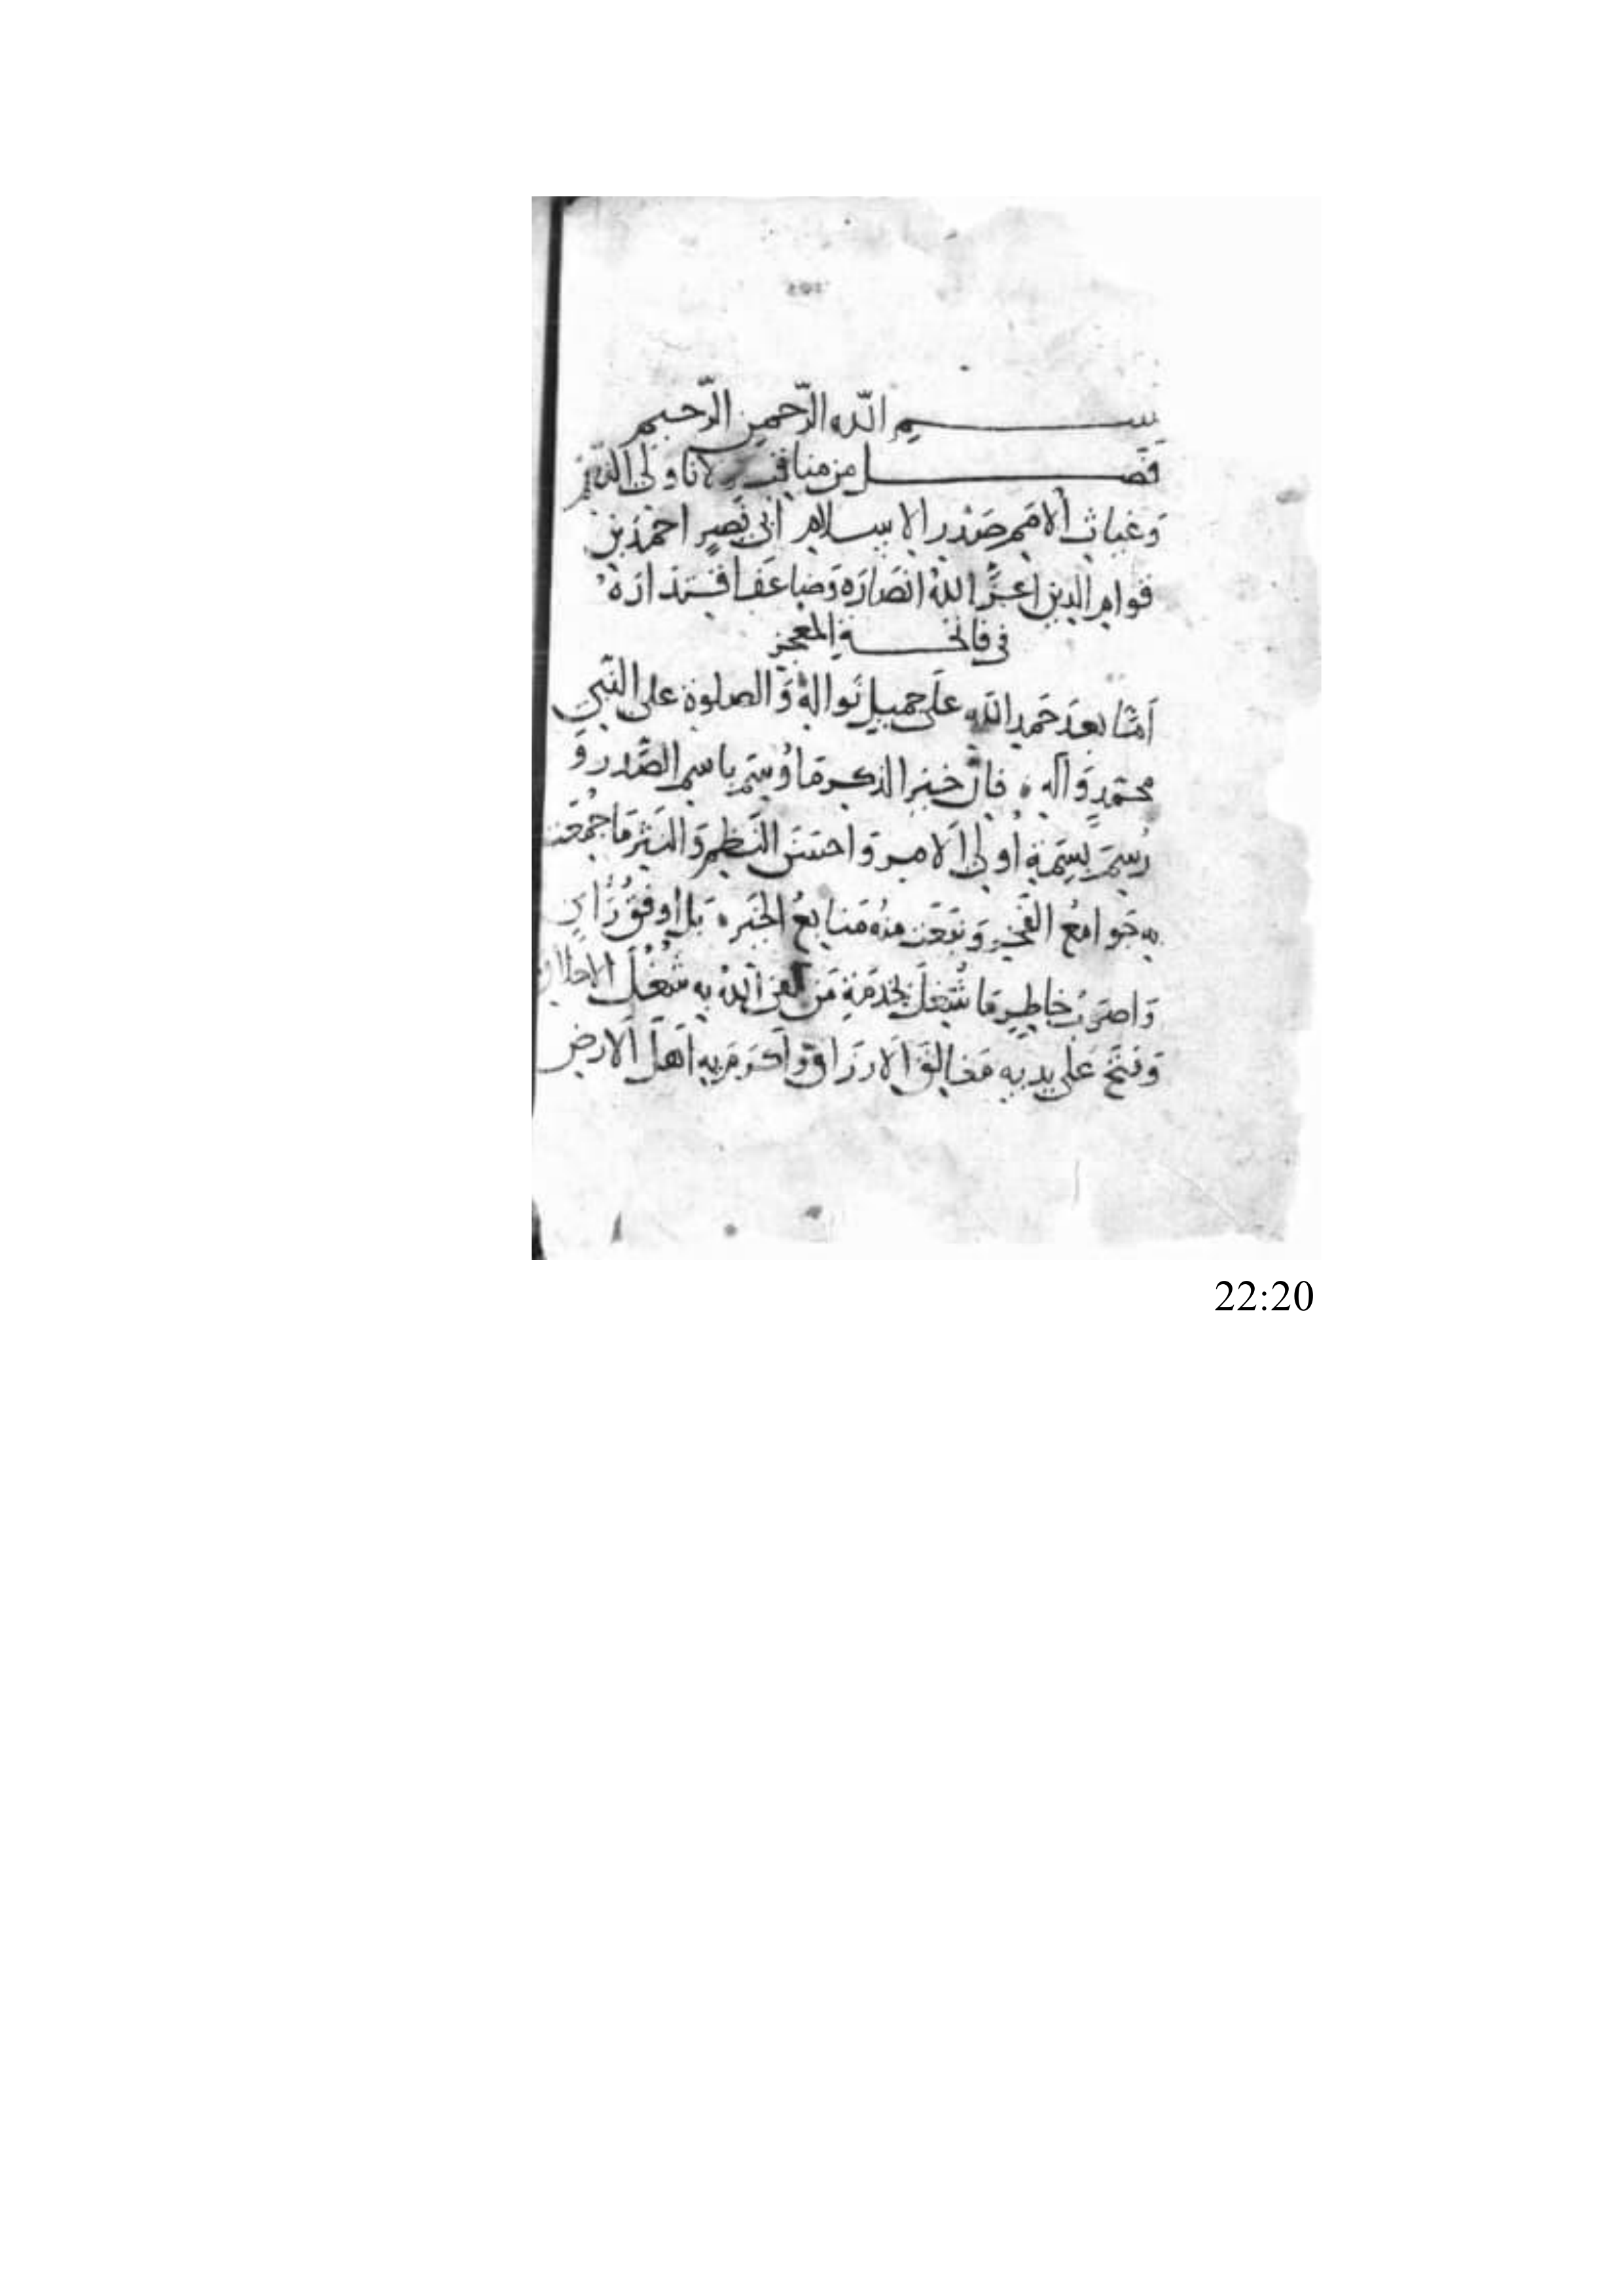 بسم الله الرحمن الرحيم
فصل من مناقب ولي
وغياث الامم صدر الاسلام ابي نصر احمد بن
قوام الدين اعز الله انصاره وضاعف اقتداره
في فاتحة المعجز
اما بعد حمد الله على جميل نواله والصلوة على النبي
محمد وآله فان خير الذكر ما وسم باسم الصدر و
رسم بسمة اولي الامر واحسن النظم والنثر ما جمعت
به جوامع الفخر ونبعت منه منابع بل اوفق
واصوب خاطر ما شغل بخدمة من الله به شغل الاخلاق
وفتح على يديه مغاليق الارزاق واكرم به اهل الارض
22:20